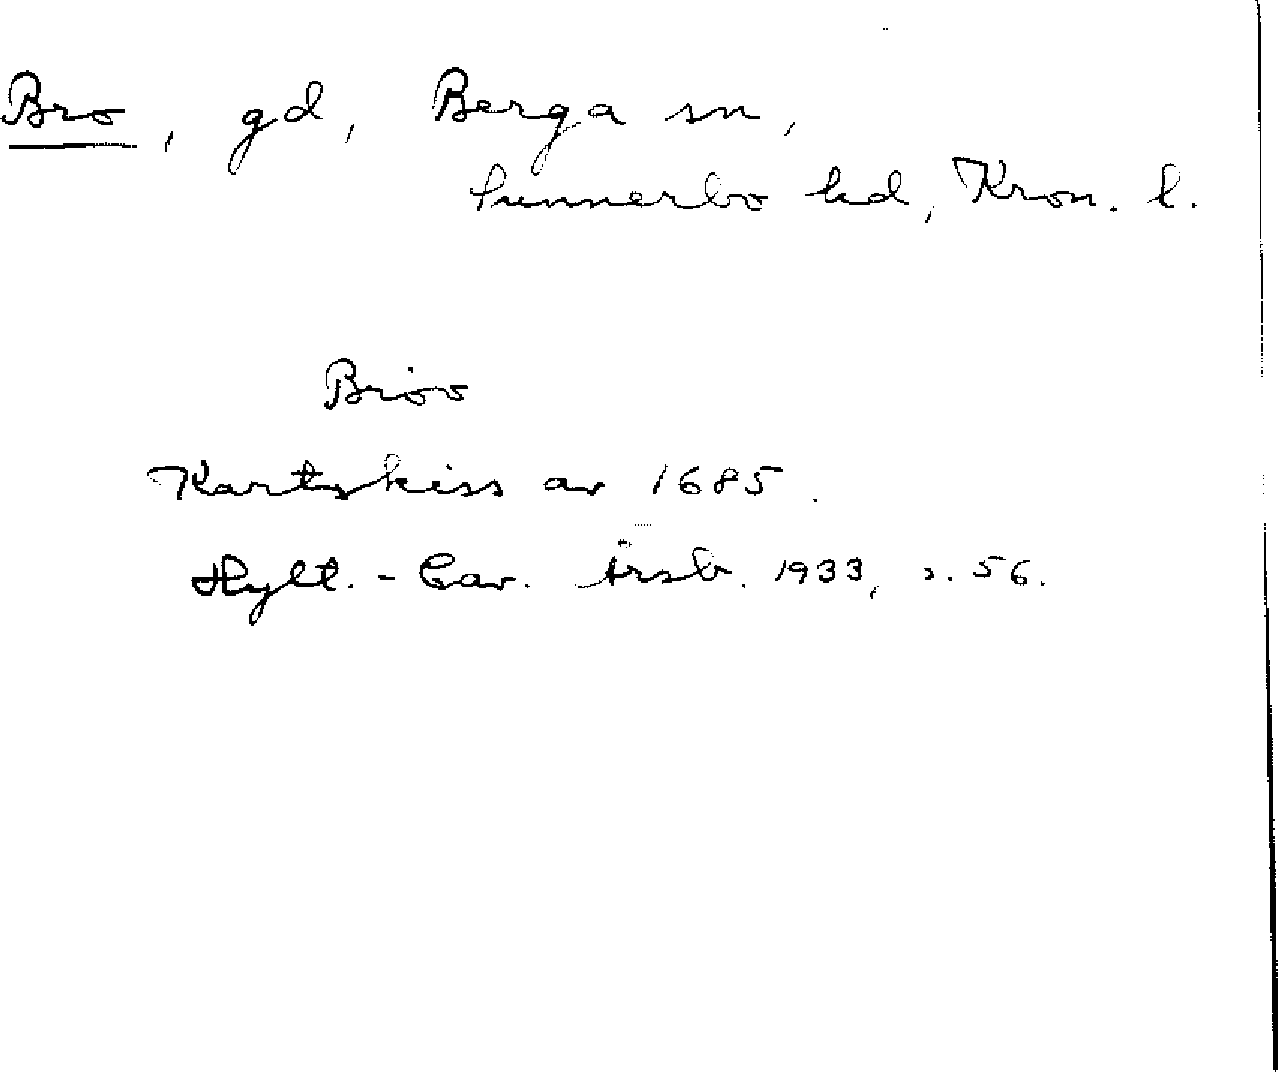 Bro, gd, Berga sn,
Sunnerbo hd, Kron. l.
Broo
Kartskiss av 1685.
Hylt.-Cav. Årsb. 1933, s. 56.